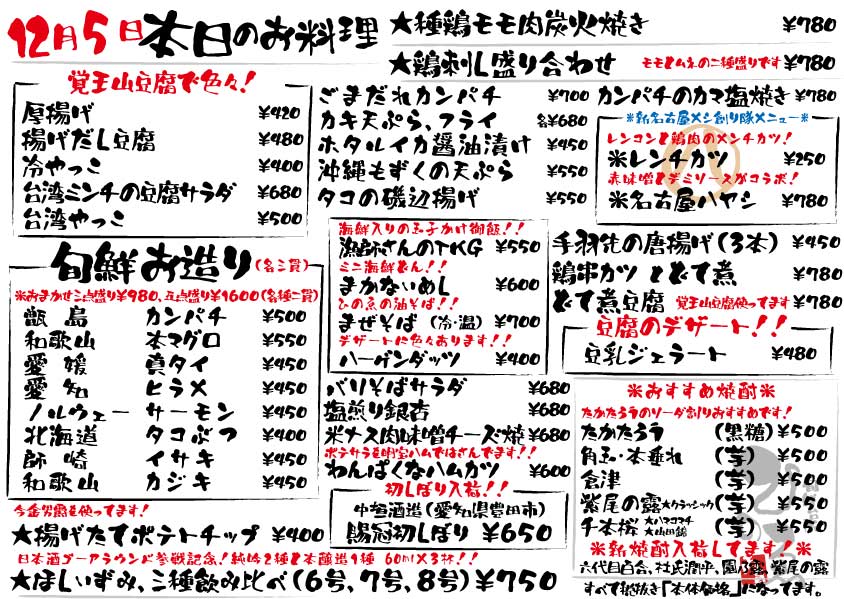 12月5日本日のお料理
★種鶏モモ肉炭火焼き ¥780
★鶏刺し盛り合わせ モモとムネの二種盛りです ¥780
覚王山豆腐で色々!
厚揚げ ¥420
揚げだし豆腐 ¥480
冷やっこ ¥400
台湾ミンチの豆腐サラダ ¥680
台湾やっこ ¥500
ごまだれカンパチ ¥700
カキ天ぷら、フライ 各¥680
ホタルイカ醤油漬け ¥450
沖縄もずくの天ぷら ¥550
タコの磯辺揚げ ¥550
カンパチのカマ塩焼き ¥780
※新名古屋メシ創り隊メニュー※
レンコンと鶏肉のメンチカツ!
米レンチカツ ¥250
赤味噌とデミソースがコラボ!
米名古屋ハヤシ ¥780
旬鮮お造り(各三貫)
※おまかせ三点盛り¥980、五点盛り¥1600(各種二貫)
甑島 カンパチ ¥500
和歌山 本マグロ ¥550
愛媛 真タイ ¥450
愛知 ヒラメ ¥450
ノルウェー サーモン ¥450
北海道 タコぶつ ¥400
師崎 イサキ ¥450
和歌山 カジキ ¥450
海鮮入りの玉子かけ御飯!!
漁師さんのTKG ¥550
ミニ海鮮どん!!
まかないめし ¥600
ひの魚の油そば!!
まぜそば (冷・温) ¥700
デザートに色々あります!!
ハーゲンダッツ ¥400
手羽先の唐揚げ(3本) ¥450
鶏串カツ とどて煮 ¥780
どて煮豆腐 覚王山豆腐使ってます ¥780
豆腐のデザート!!
豆乳ジェラート ¥480
バリそばサラダ ¥680
塩煎り銀杏 ¥680
米ナス肉味噌チーズ焼 ¥680
ポテサラを明宝ハムではさんでます!!
わんぱくなハムカツ ¥600
初しぼり入荷!!
中垣酒造(愛知県豊田市)
賜冠初しぼり ¥650
※おすすめ焼酎※
たかたろうのソーダ割りおすすめです!
たかたろう (黒糖) ¥500
角玉・本垂れ (芋) ¥500
倉津 (芋) ¥500
紫尾の露 大クラッシック (芋) ¥550
千本桜 大ハマコマチ 大山田錦 (芋) ¥550
※新焼酎入荷してます!※
六代目百合、杜氏潤平、園乃露、紫尾の露
すべて税抜き「本体価格」になってます。
今金男爵を使ってます!
★揚げたてポテトチップ ¥400
日本酒ゴーアラウンド参戦記念!純吟2種と本醸造1種 60ml×3杯!!
★ほしいずみ、三種飲み比べ(6号、7号、8号) ¥750